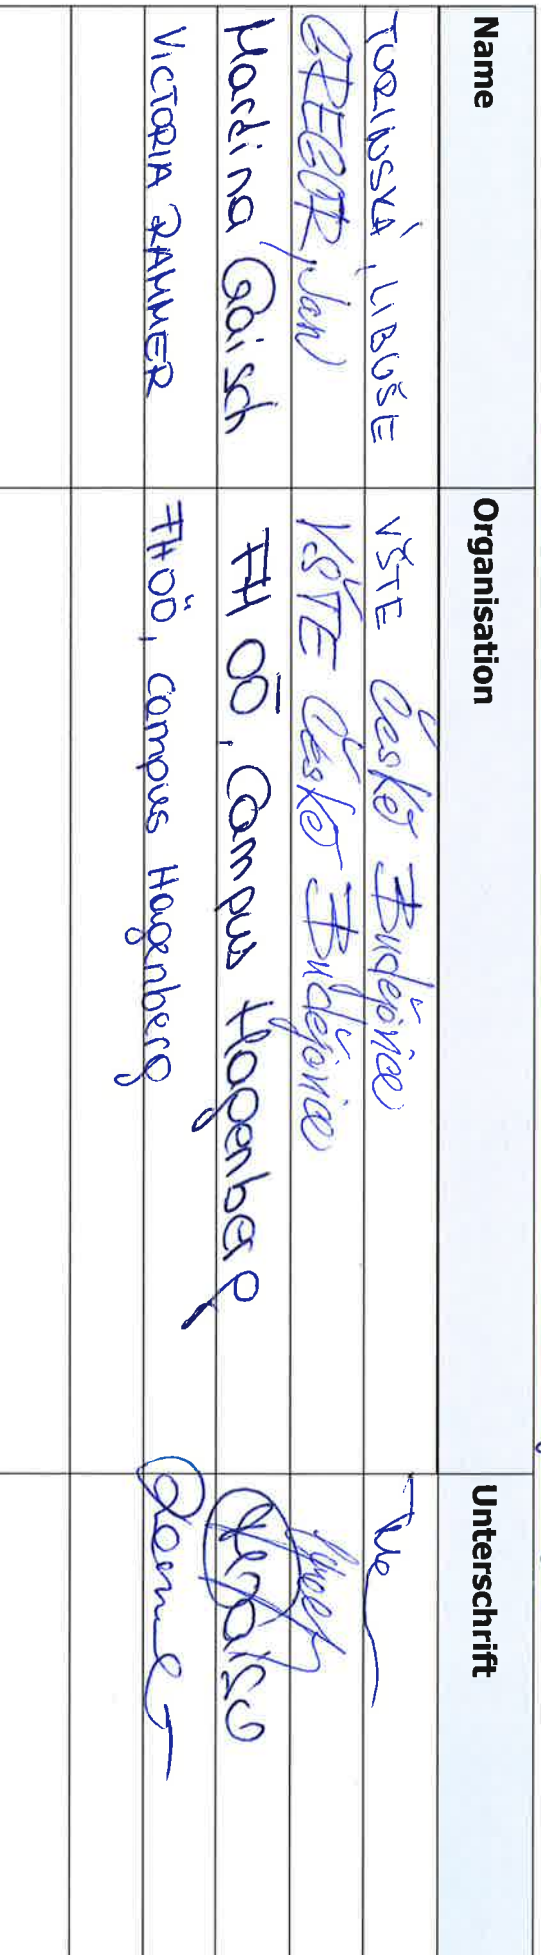 Name Organisation Unterschrift
TURINSKÁ, LIBUŠE VŠTE České Budějovice
GREGOR, Jan VŠTE České Budějovice
Martina Gaisch FH OÖ, Campus Hagenberg
VICTORIA RAMMER FHOÖ, Campus Hagenberg